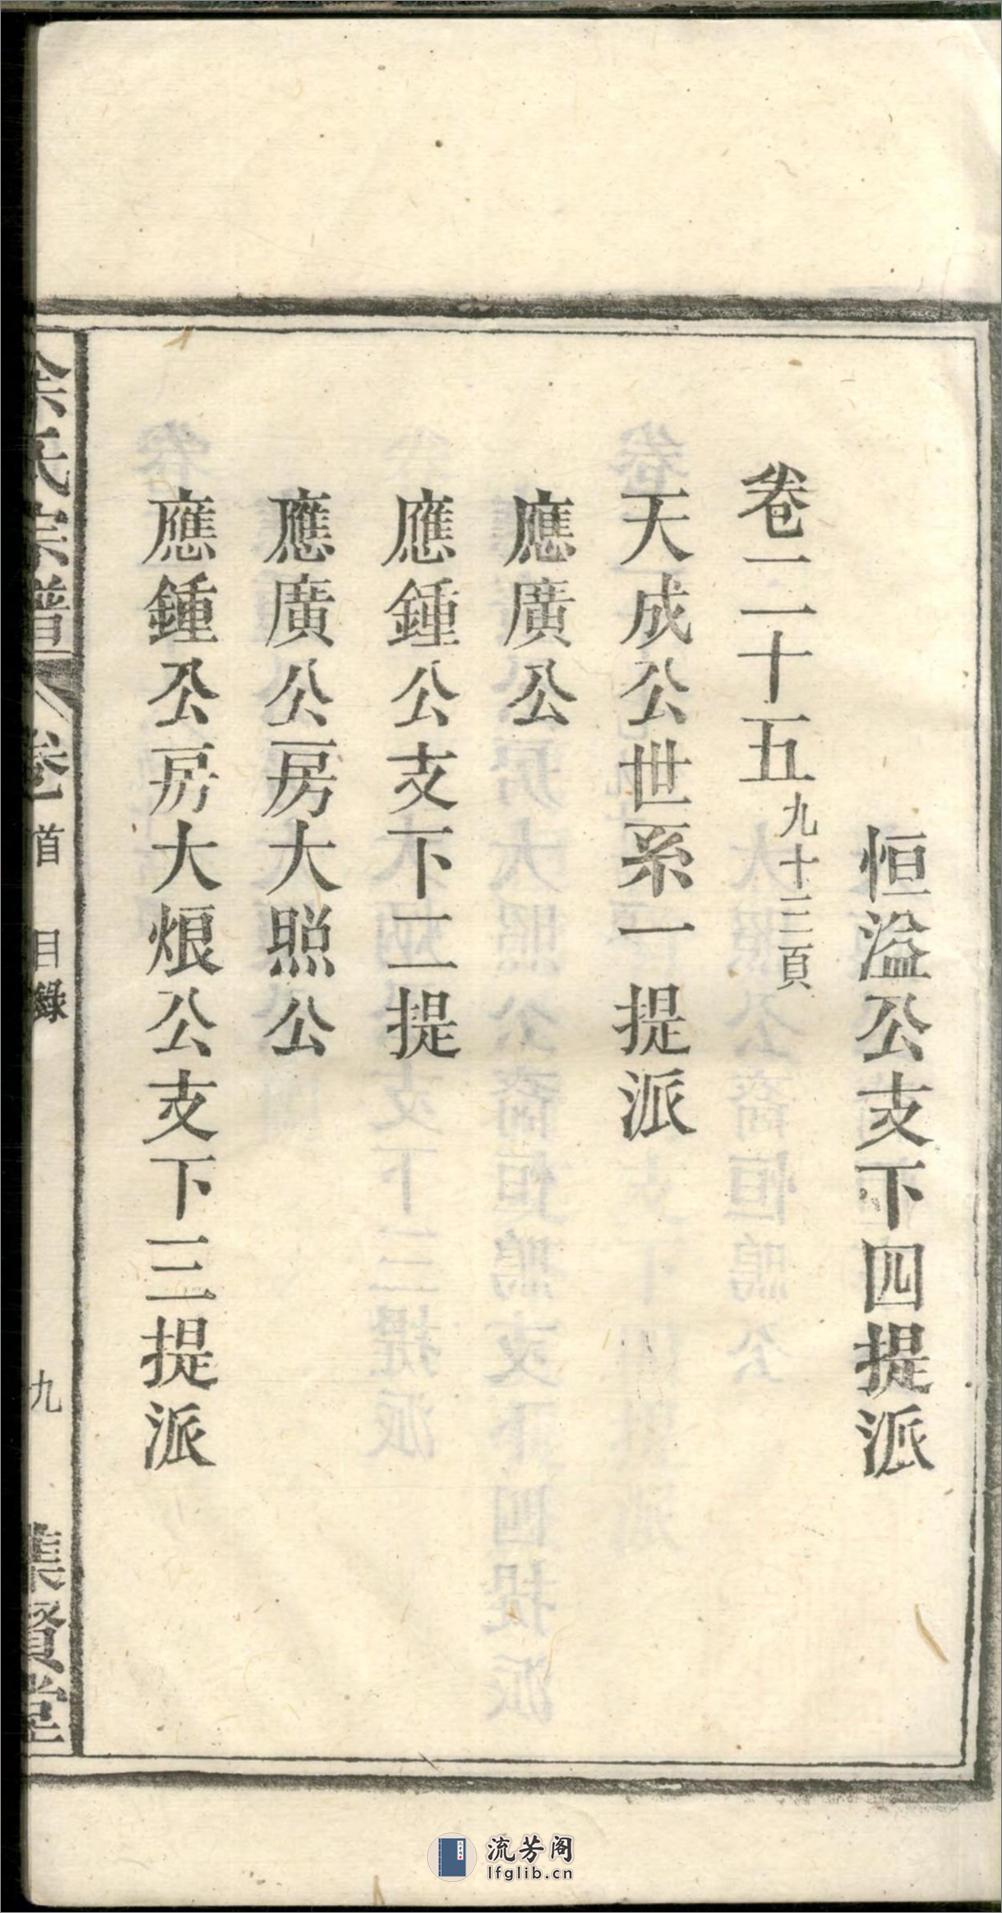 恒溢公支下四提派
卷二十五九十三頁
天成公世系一提派
應廣公
應鍾公支下二提
應廣公房大照公
應鍾公房大烺公支下三提派
氏宗譜 卷首 目錄 九 集賢堂
流芳阁
lfglib.cn